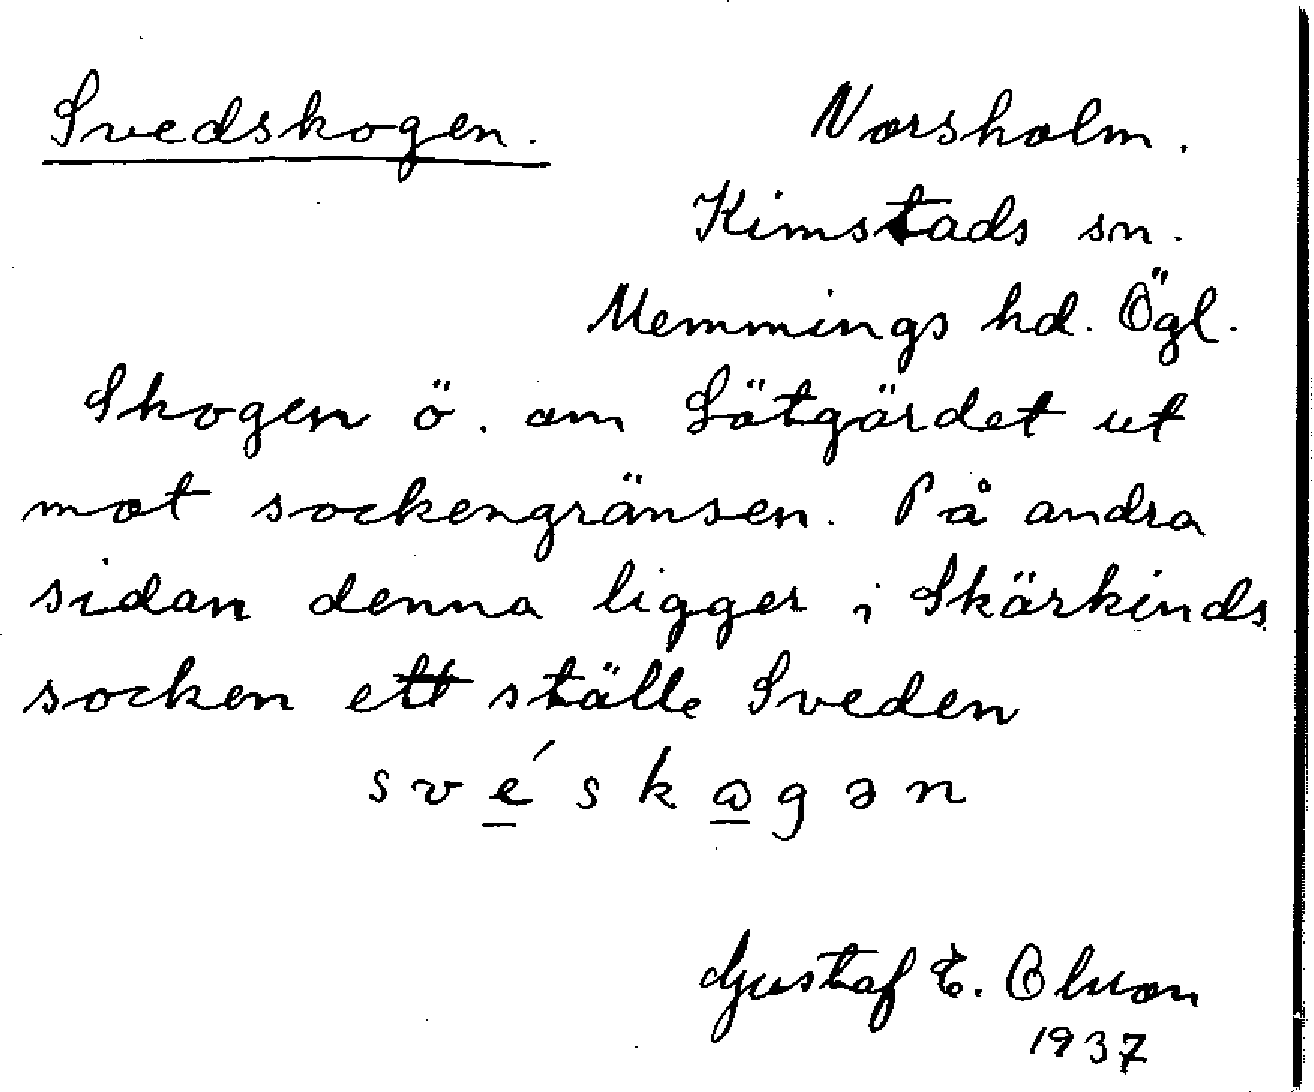 Svedskogen.
Norsholm.
Kimstads sn.
Memmings hd. Ögl.
Skogen ö. om Sötgärdet ut
mot sockengränsen. På andra
sidan denna ligger i Skärkinds
socken ett ställe Sveden
svéskωgən
Gustaf E. Olsson
1937